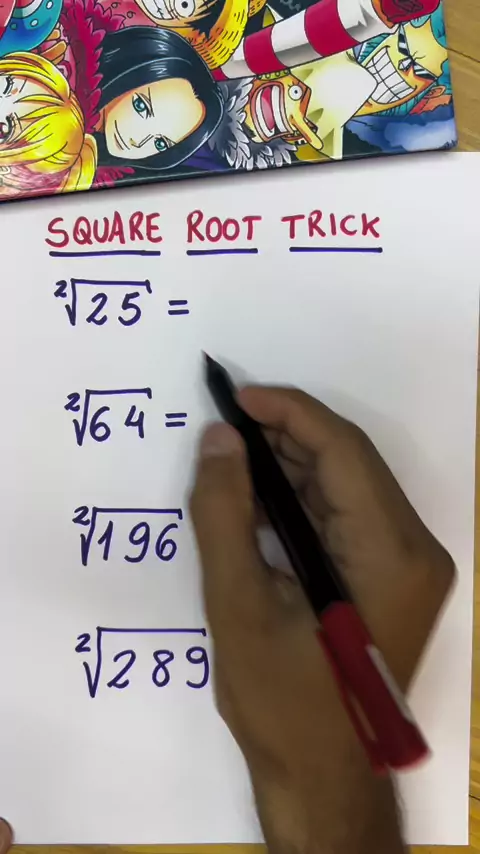 SQUARE ROOT TRICK
²√25 =
²√64 =
²√196
²√289